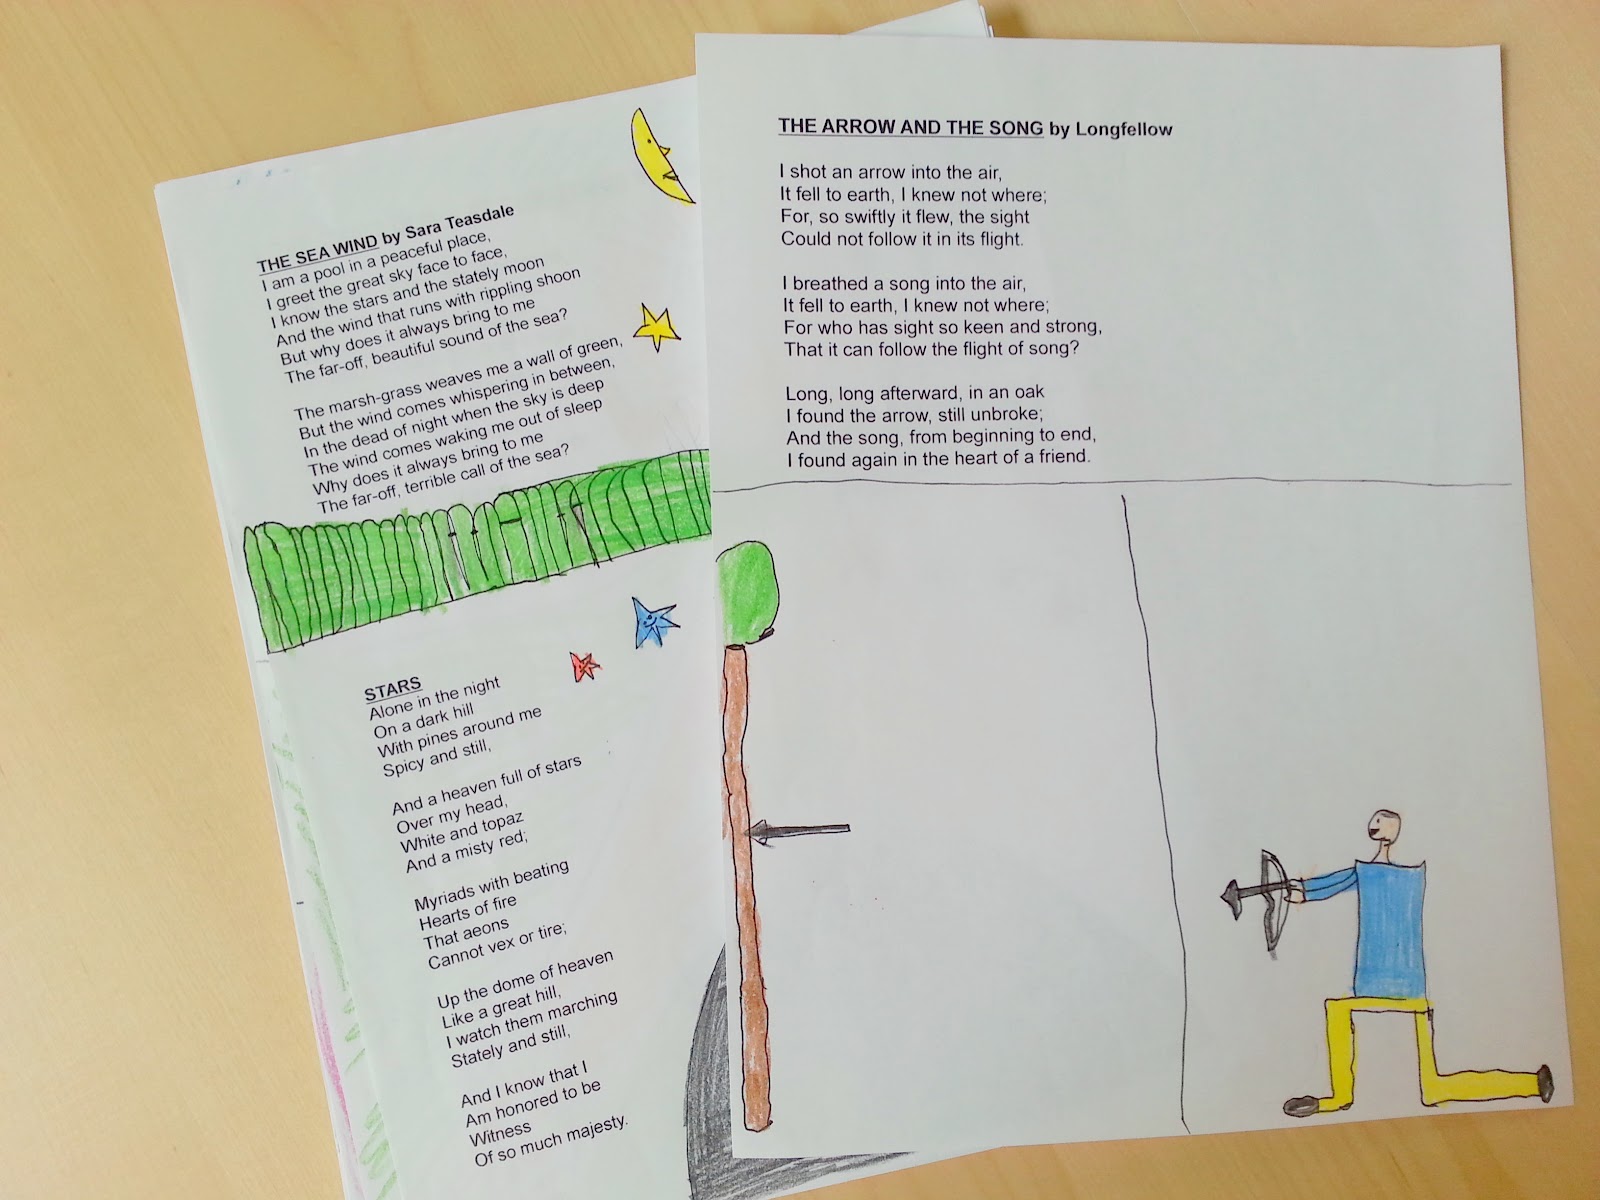 THE SEA WIND by Sara Teasdale
I am a pool in a peaceful place,
I greet the great sky face to face,
I know the stars and the stately moon
And the wind that runs with rippling shoon
But why does it always bring to me
The far-off, beautiful sound of the sea?
The marsh-grass weaves me a wall of green,
But the wind comes whispering in between,
In the dead of night when the sky is deep
The wind comes waking me out of sleep
Why does it always bring to me
The far-off, terrible call of the sea?
STARS
Alone in the night
On a dark hill
With pines around me
Spicy and still,
And a heaven full of stars
Over my head,
White and topaz
And a misty red;
Myriads with beating
Hearts of fire
That aeons
Cannot vex or tire;
Up the dome of heaven
Like a great hill,
I watch them marching
Stately and still,
And I know that I
Am honored to be
Witness
Of so much majesty.
THE ARROW AND THE SONG by Longfellow
I shot an arrow into the air,
It fell to earth, I knew not where;
For, so swiftly it flew, the sight
Could not follow it in its flight.
I breathed a song into the air,
It fell to earth, I knew not where;
For who has sight so keen and strong,
That it can follow the flight of song?
Long, long afterward, in an oak
I found the arrow, still unbroke;
And the song, from beginning to end,
I found again in the heart of a friend.